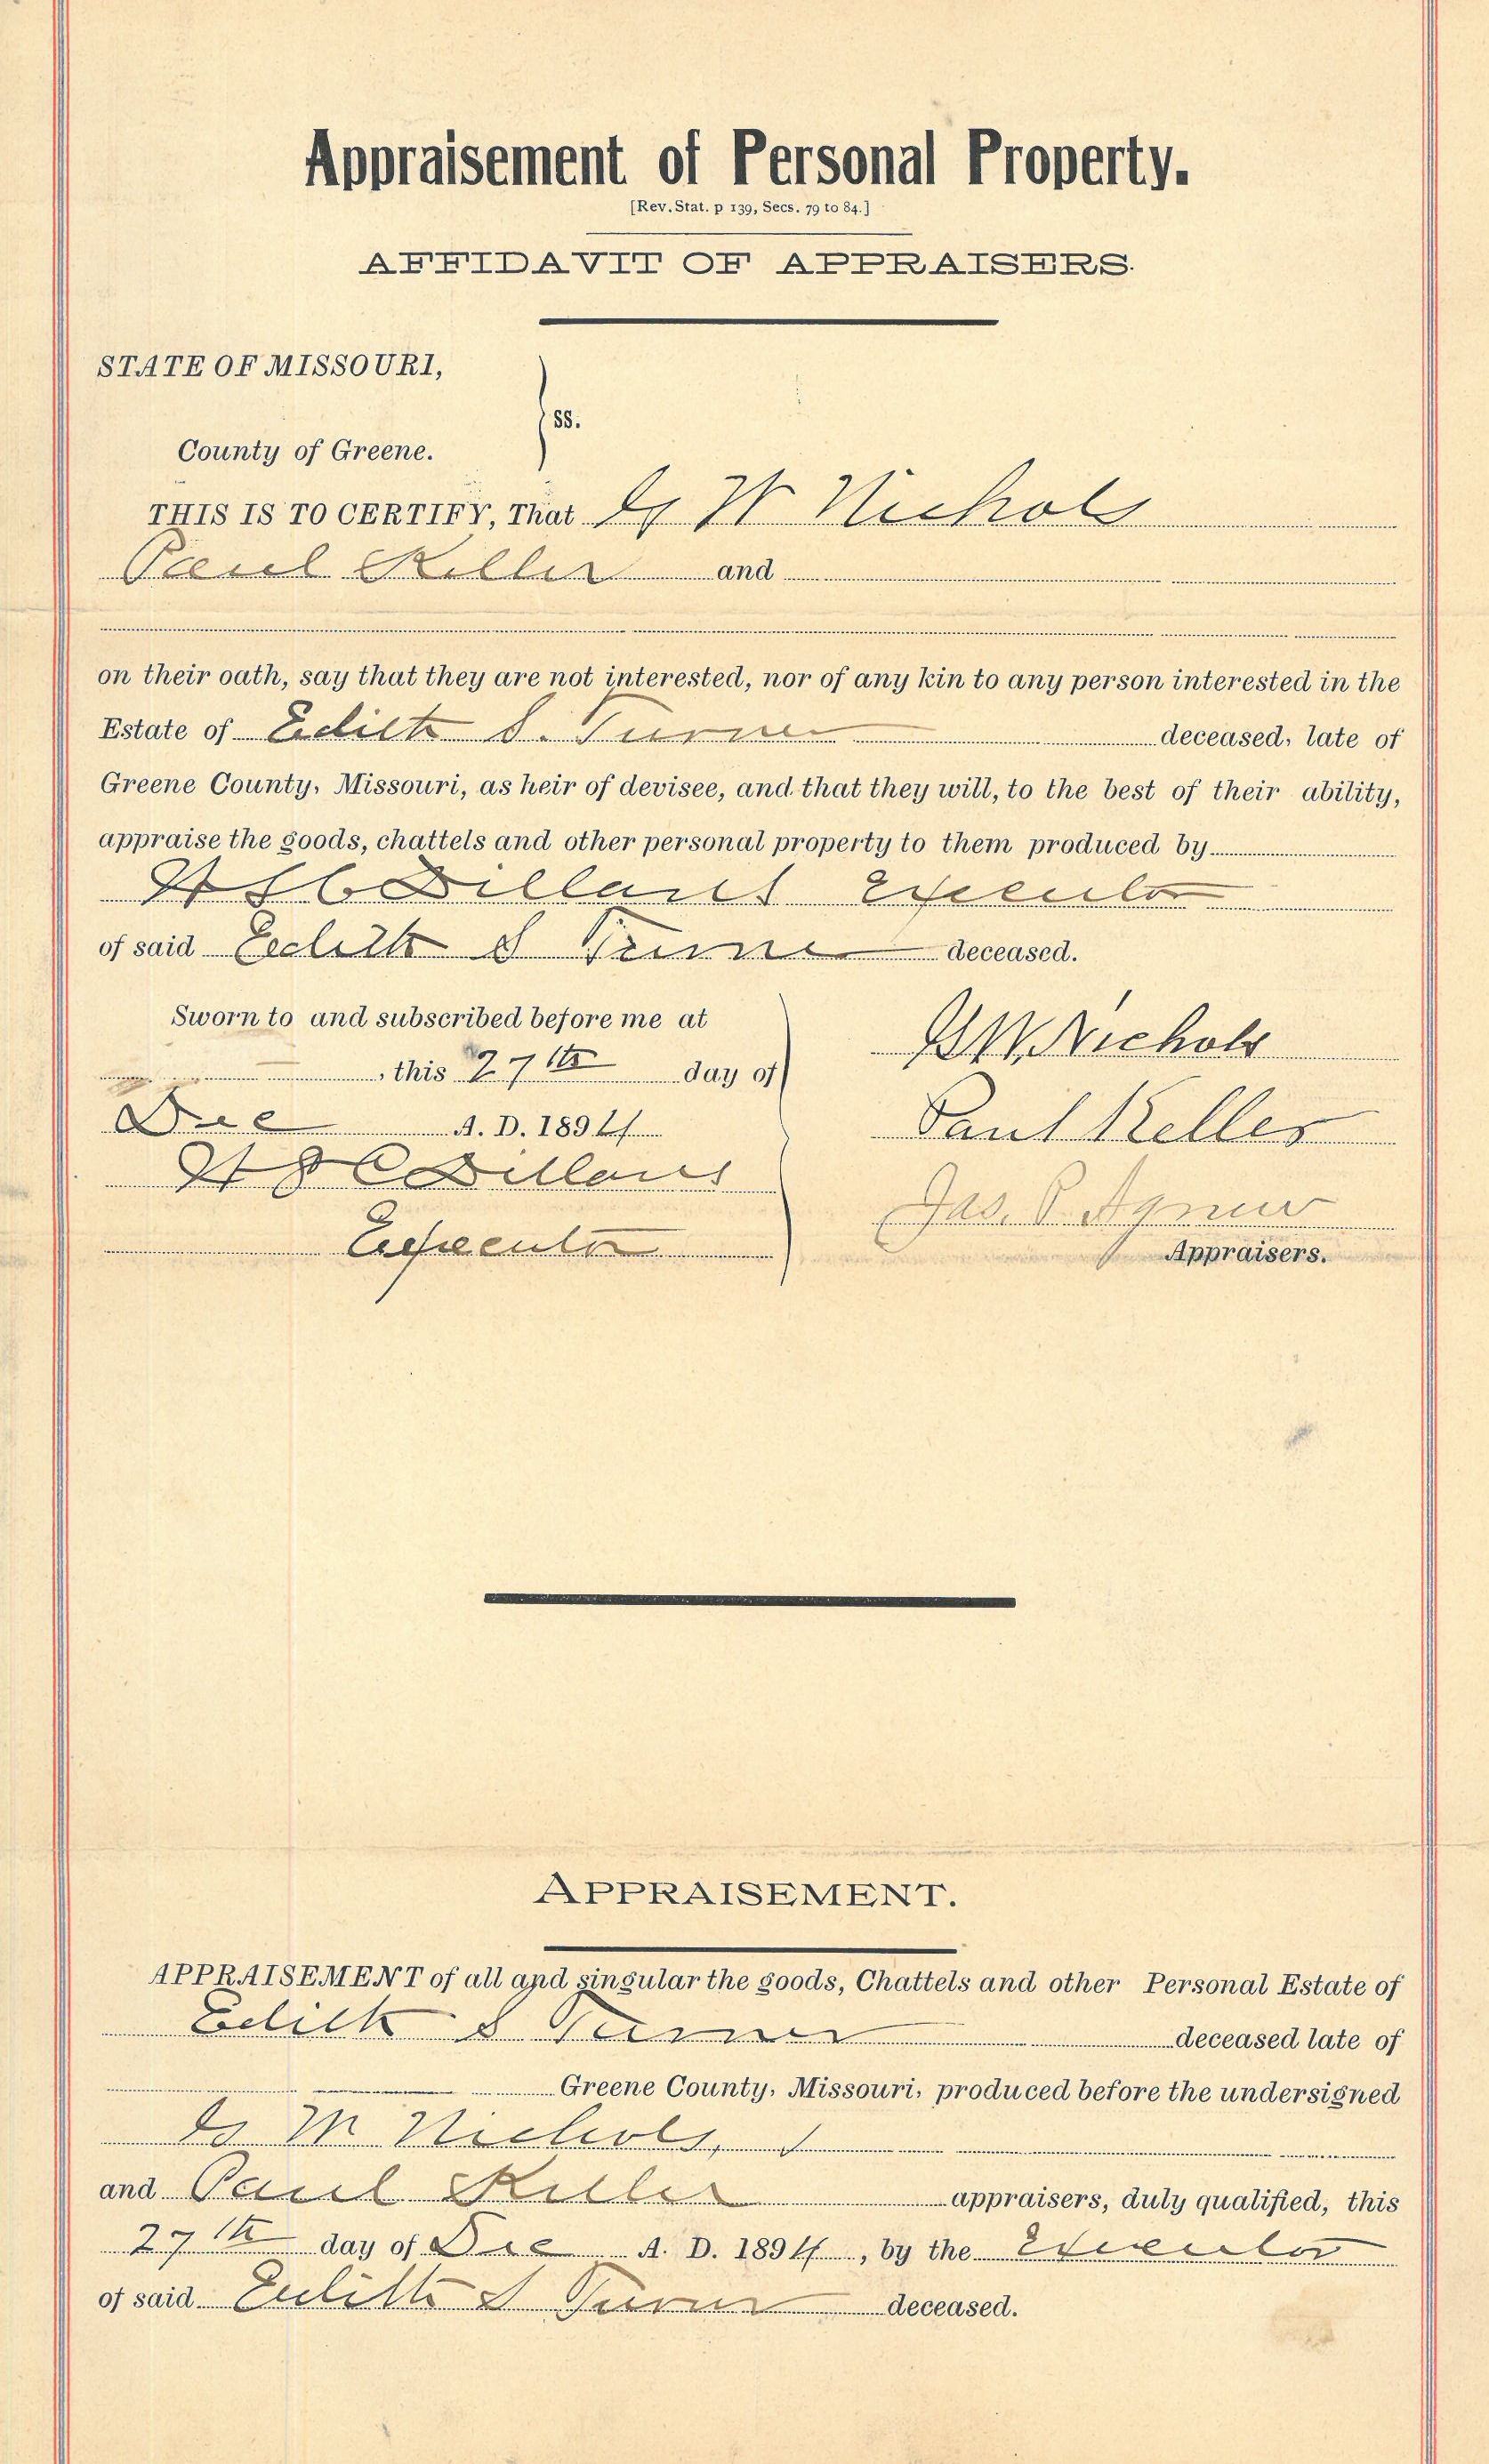 Appraisement of Personal Property.
[Rev. Stat. p 139, Secs. 79 to 84.]
AFFIDAVIT OF APPRAISERS.
STATE OF MISSOURI,
ss.
County of Greene.
THIS IS TO CERTIFY, That G W Nichols
Paul Keller and
on their oath, say that they are not interested, nor of any kin to any person interested in the
Estate of Edith S. Turner deceased, late of
Greene County, Missouri, as heir of devisee, and that they will, to the best of their ability,
appraise the goods, chattels and other personal property to them produced by
Dillard Executor
of said Edith S Turner deceased.
Sworn to and subscribed before me at
, this 27th day of
Dec A. D. 1894
Dillard
Executor
G W Nichols
Paul Keller
Jas. P. Agnew
Appraisers.
APPRAISEMENT.
APPRAISEMENT of all and singular the goods, Chattels and other Personal Estate of
Edith S Turner deceased late of
Greene County, Missouri, produced before the undersigned
Nichols,
and Paul Keller appraisers, duly qualified, this
27th day of Dec A. D. 1894, by the Executor
of said Edith S Turner deceased.